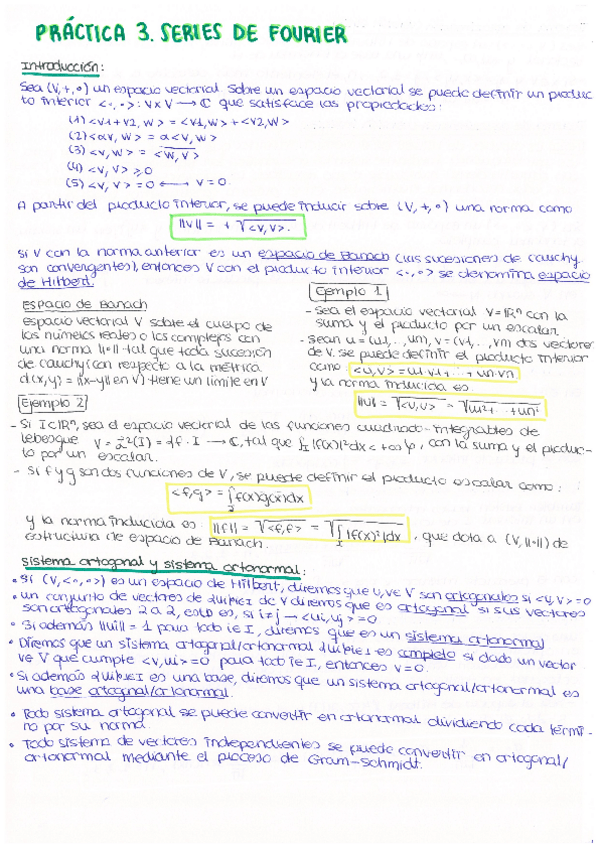 PRÁCTICA 3. SERIES DE FOURIER
Introducción:
Sea (V,+,∘) un espacio vectorial sobre un espacio vectorial se puede definir un produc
to interior <∘,∘>: V x V → ℂ que satisface las propiedades:
(1) <v1+v2, w> = <v1,w> + <v2,w>
(2) <αv, w> = α<v,w>
(3) <v,w> = \overline{<w,v>}
(4) <v,v> ≥ 0
(5) <v,v> = 0 ⟷ v = 0.
A partir del producto interior, se puede inducir sobre (V,+,∘) una norma como
||v|| = + √<v,v>.
Si V con la norma anterior es un espacio de Banach (las sucesiones de cauchy
son convergentes), entonces V con el producto interior <∘,∘> se denomina espacio
de Hilbert.
Espacio de Banach
espacio vectorial V sobre el cuerpo de
los números reales o los complejos con
una norma ||∘|| tal que toda sucesión
de cauchy (con respecto a la métrica
d(x,y) = ||x-y|| en V) tiene un límite en V
Ejemplo 1
- sea el espacio vectorial V = ℝⁿ con la
suma y el producto por un escalar.
- sean u = (u1,..., un), v = (v1,..., vn) dos vectores
de V. se puede definir el producto interior
como <u,v> = u1·v1 + ... + un·vn
y la norma inducida es
||u|| = √<u,v> = √u1² + ... + un²
Ejemplo 2
- Si I ⊂ ℝⁿ, sea el espacio vectorial de las funciones cuadrado-integrables de
lebesgue V = L²(I) = {f: I → ℂ, tal que ∫_I |f(x)|² dx < +∞}, con la suma y el produc-
to por un escalar.
- si f y g son dos funciones de V, se puede definir el producto escalar como:
<f,g> = ∫_I f(x)g(x) dx
y la norma inducida es: ||f|| = √<f,f> = √∫_I |f(x)|² dx, que dota a (V, ||∘||) de
estructura de espacio de Banach.
Sistema ortogonal y sistema ortonormal:
• Si (V, <∘,∘>) es un espacio de Hilbert, diremos que u, v ∈ V son ortogonales si <u,v> = 0
• un conjunto de vectores {ui}i∈I de V diremos que es ortogonal si sus vectores
son ortogonales 2 a 2, esto es, si i≠j → <ui, uj> = 0
• Si además ||ui|| = 1 para todo i∈I, diremos que es un sistema ortonormal
• Diremos que un sistema ortogonal/ortonormal {ui}i∈I es completo si dado un vector
v∈V que cumpte <v,ui> = 0 para todo i∈I, entonces v = 0.
• Si además {ui}i∈I es una base, diremos que un sistema ortogonal/ortonormal es
una base ortogonal/ortonormal.
• Todo sistema ortogonal se puede convertir en ortonormal dividiendo cada térmi-
no por su norma.
• Todo sistema de vectores independientes se puede convertir en ortogonal/
ortonormal mediante el proceso de Gram-Schmidt.